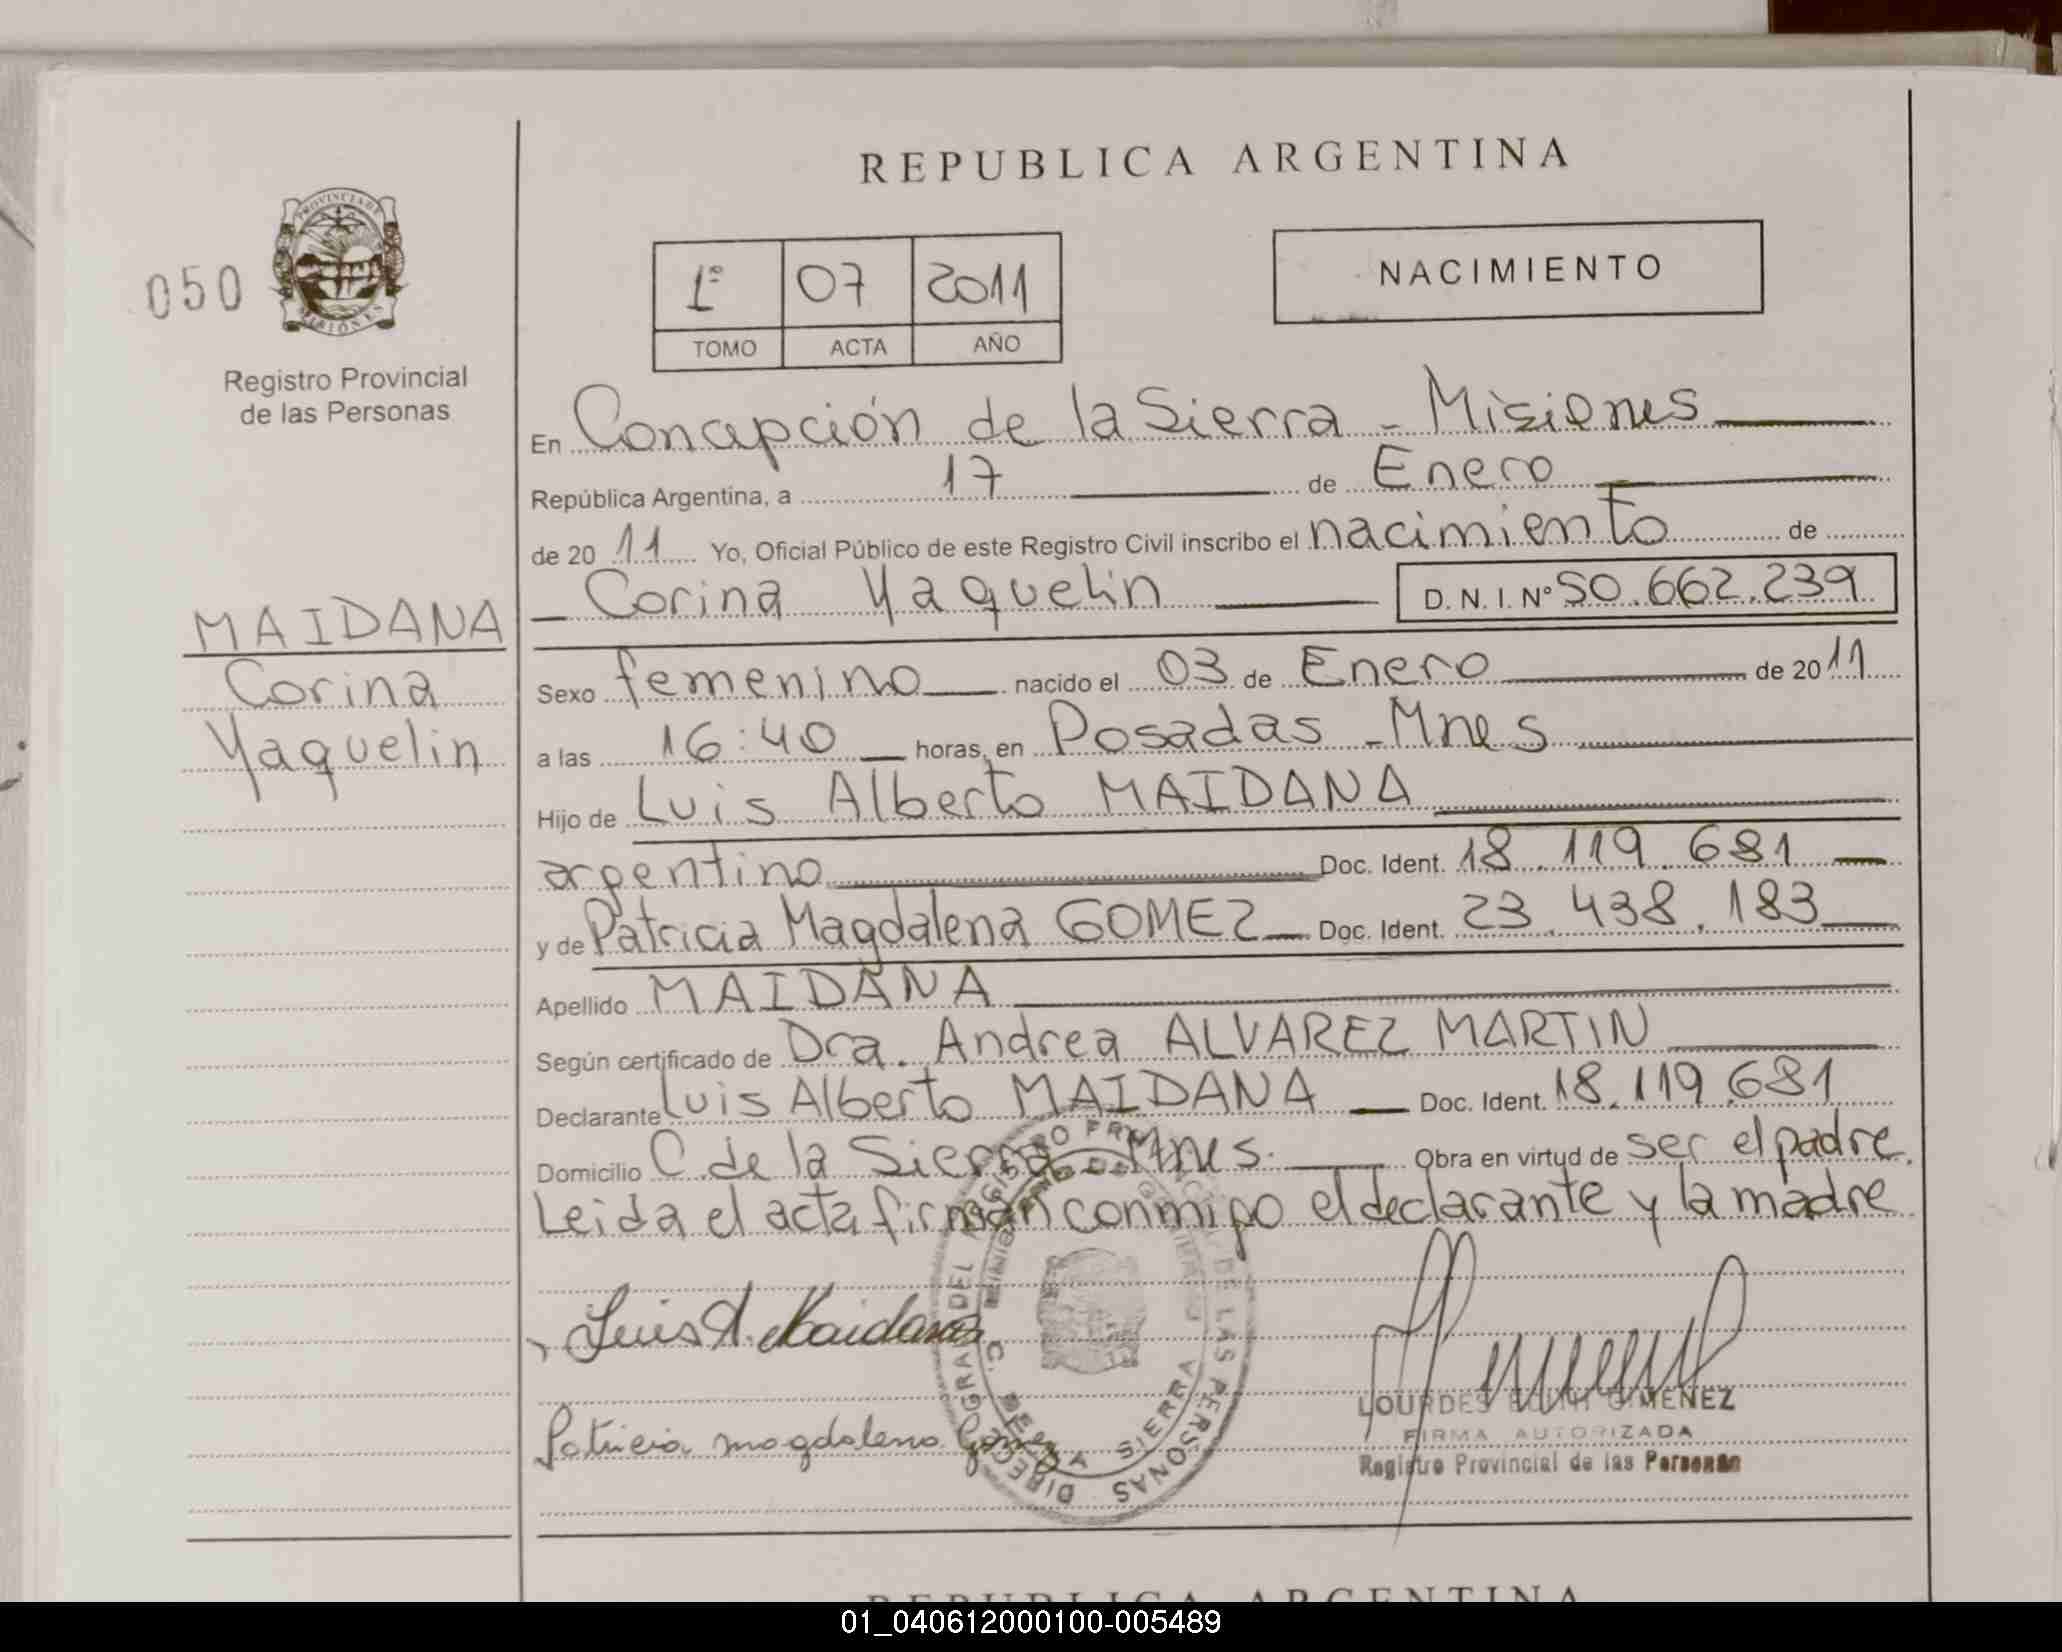 REPUBLICA ARGENTINA
050
PROVINCIA DE
MISIONES
Registro Provincial
de las Personas
1º 07 2011
TOMO ACTA AÑO
NACIMIENTO
En Concepción de la Sierra - Misiones
República Argentina, a 17 de Enero
de 20 11 Yo, Oficial Público de este Registro Civil inscribo el nacimiento de
Corina Yaquelin D. N. I. Nº 50.662.239
MAIDANA
Corina
Yaquelin
Sexo femenino nacido el 03 de Enero de 2011
a las 16:40 horas, en Posadas - Mnes
Hijo de Luis Alberto MAIDANA
argentino Doc. Ident. 18.119.681
y de Patricia Magdalena GOMEZ Doc. Ident. 23.438.183
Apellido MAIDANA
Según certificado de Dra. Andrea ALVAREZ MARTIN
Declarante Luis Alberto MAIDANA Doc. Ident. 18.119.681
Domicilio C. de la Sierra - Mnes. Obra en virtud de ser el padre.
Leida el acta firman conmigo el declarante y la madre
Luis A. Maidana
Patricia magdalena Gomez
DIRECC. GRAL. DEL REGISTRO PROVINCIAL DE LAS PERSONAS
MINISTERIO DE GOBIERNO
C. DE LA SIERRA
LOURDES GIMENEZ
FIRMA AUTORIZADA
Registro Provincial de las Personas
REPUBLICA ARGENTINA
01_040612000100-005489